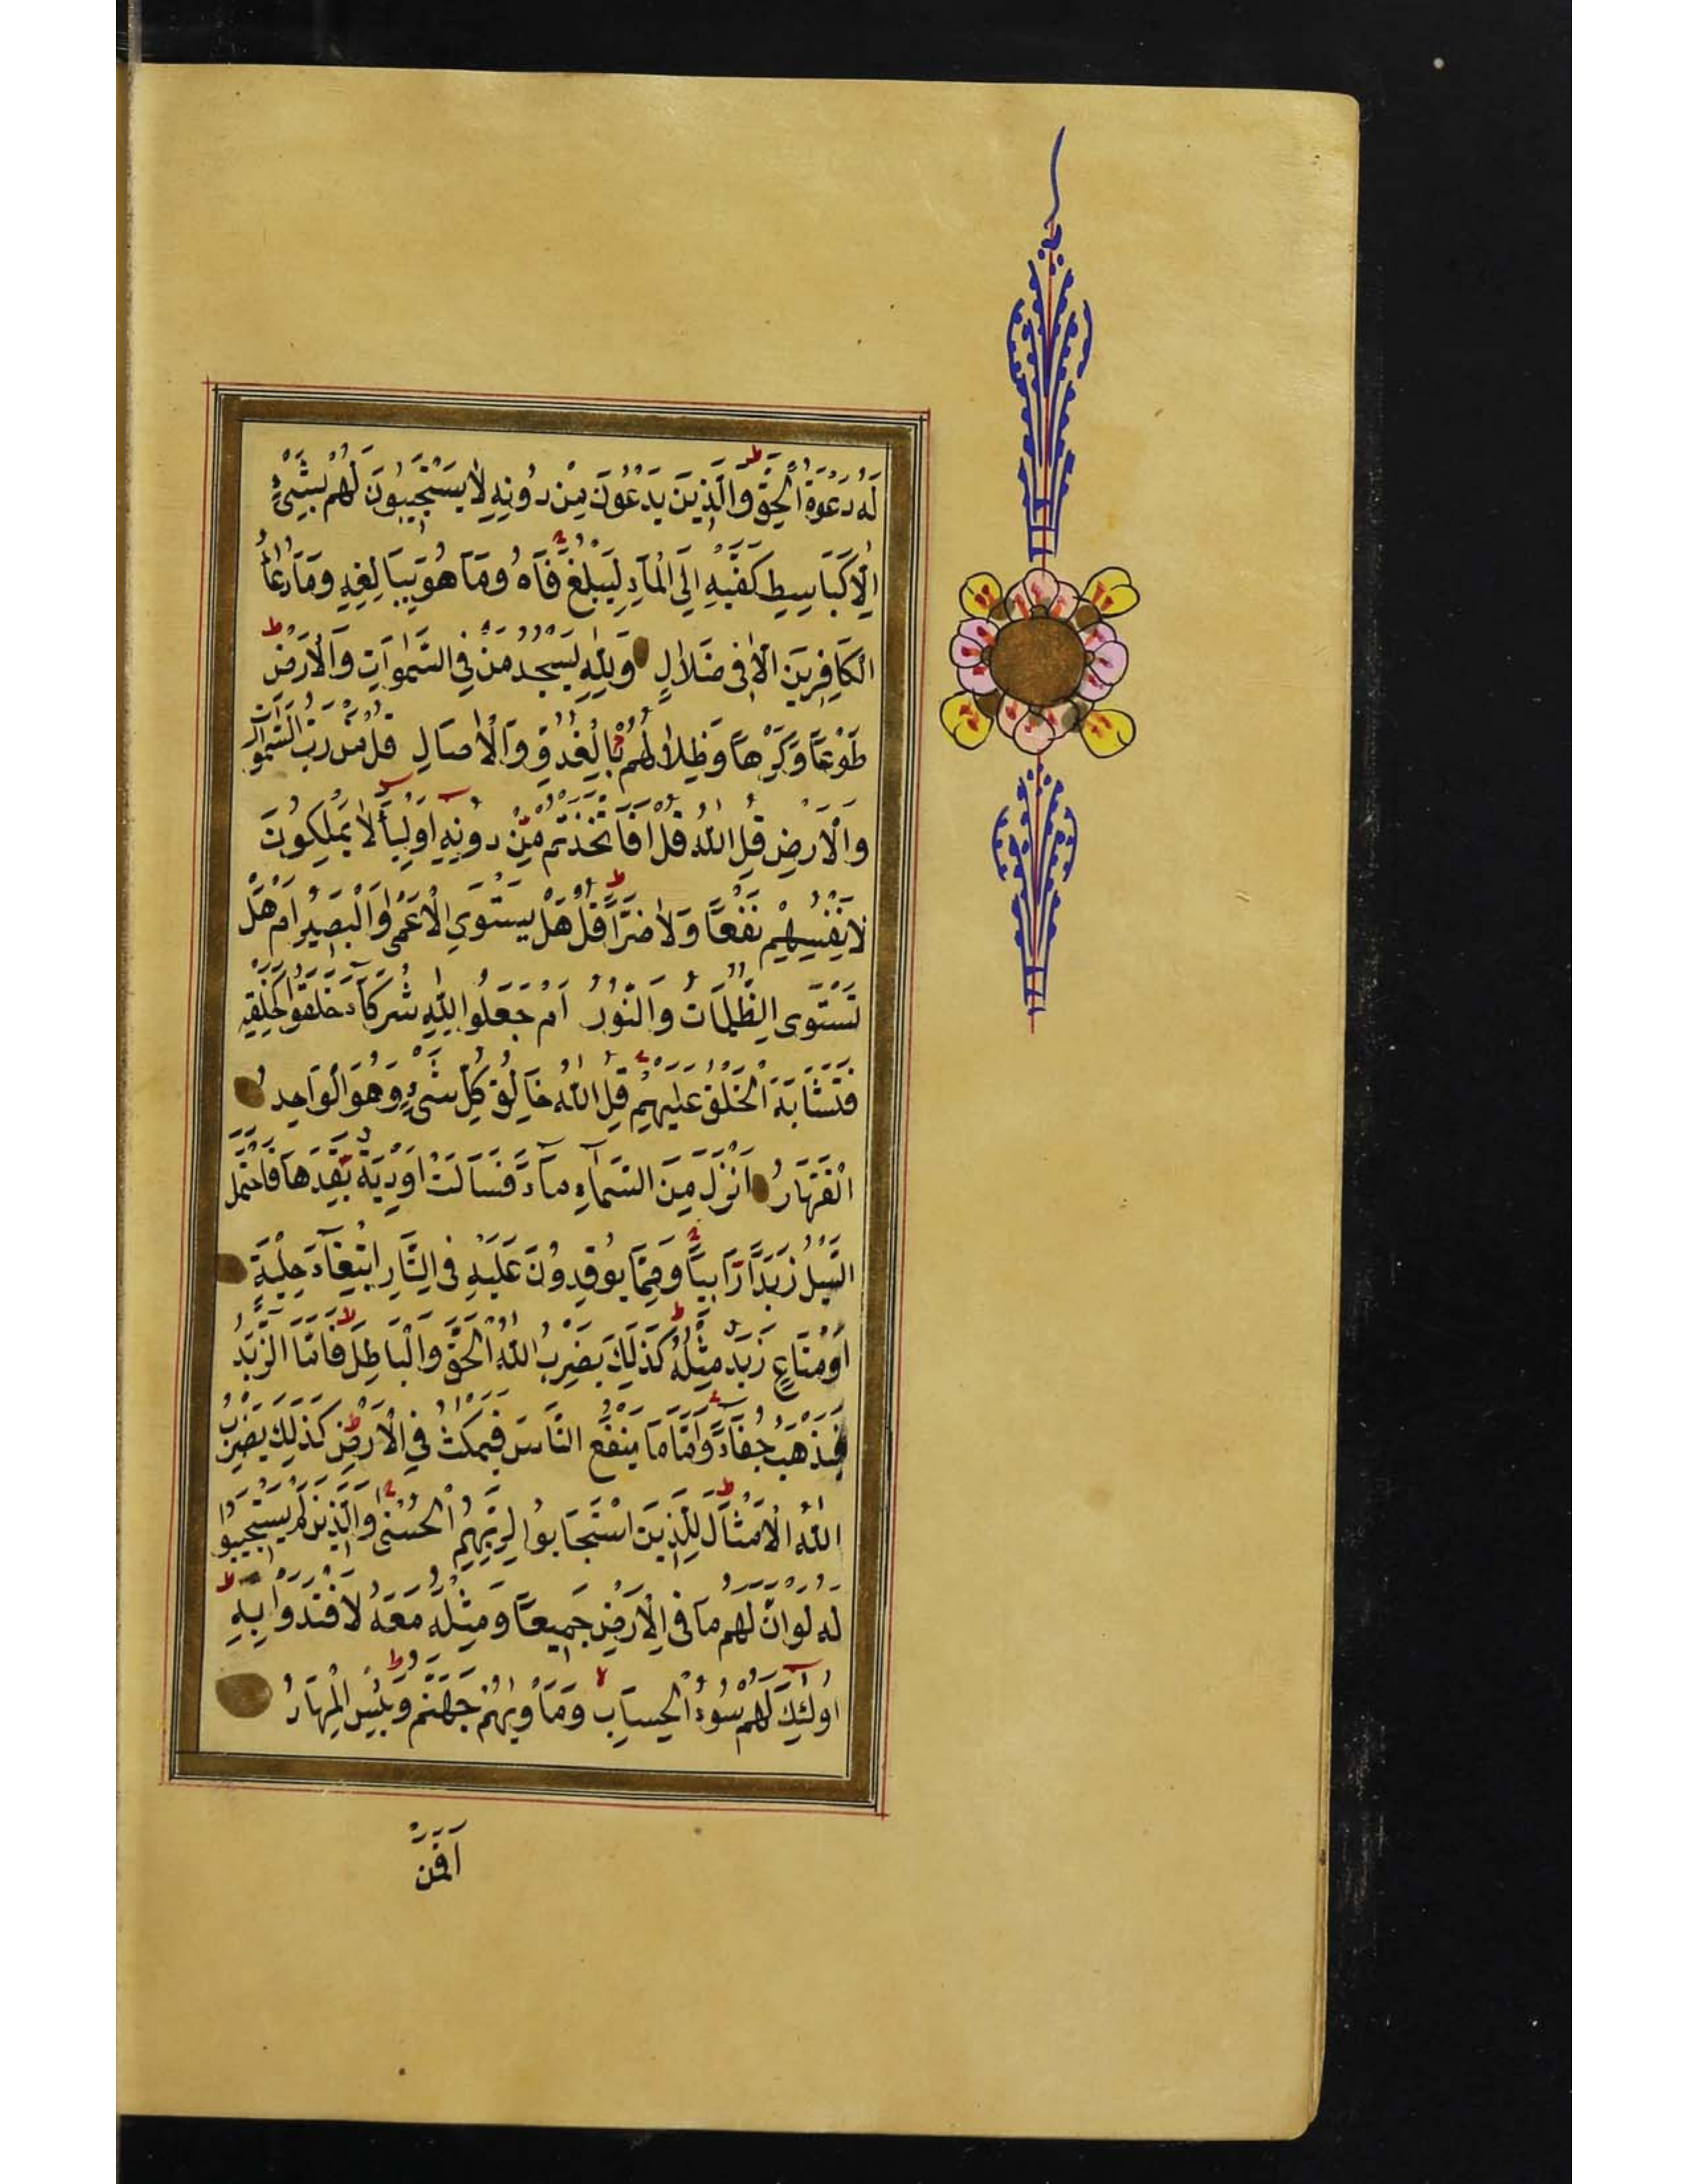 لَهُ دَعْوَةُ الْحَقِّ وَالَّذِينَ يَدْعُونَ مِنْ دُونِهِ لَا يَسْتَجِيبُونَ لَهُمْ بِشَيْءٍ
اِلَّا كَبَاسِطِ كَفَّيْهِ اِلَى الْمَاءِ لِيَبْلُغَ فَاهُ وَمَا هُوَ بِبَالِغِهِ وَمَا دُعَاءُ
الْكَافِرِينَ اِلَّا فِى ضَلَالٍ وَلِلّٰهِ يَسْجُدُ مَنْ فِى السَّمٰوَاتِ وَالْاَرْضِ
طَوْعًا وَكَرْهًا وَظِلَالُهُمْ بِالْغُدُوِّ وَالْاٰصَالِ قُلْ مَنْ رَبُّ السَّمٰوَاتِ
وَالْاَرْضِ قُلِ اللّٰهُ قُلْ اَفَاتَّخَذْتُمْ مِنْ دُونِهِ اَوْلِيَاءَ لَا يَمْلِكُونَ
لِاَنْفُسِهِمْ نَفْعًا وَلَا ضَرًّا قُلْ هَلْ يَسْتَوِى الْاَعْمٰى وَالْبَصِيرُ اَمْ هَلْ
تَسْتَوِى الظُّلُمَاتُ وَالنُّورُ اَمْ جَعَلُوا لِلّٰهِ شُرَكَاءَ خَلَقُوا كَخَلْقِهِ
فَتَشَابَهَ الْخَلْقُ عَلَيْهِمْ قُلِ اللّٰهُ خَالِقُ كُلِّ شَيْءٍ وَهُوَ الْوَاحِدُ
الْقَهَّارُ اَنْزَلَ مِنَ السَّمَاءِ مَاءً فَسَالَتْ اَوْدِيَةٌ بِقَدَرِهَا فَاحْتَمَلَ
السَّيْلُ زَبَدًا رَابِيًا وَمِمَّا يُوقِدُونَ عَلَيْهِ فِى النَّارِ ابْتِغَاءَ حِلْيَةٍ
اَوْ مَتَاعٍ زَبَدٌ مِثْلُهُ كَذٰلِكَ يَضْرِبُ اللّٰهُ الْحَقَّ وَالْبَاطِلَ فَاَمَّا الزَّبَدُ
فَيَذْهَبُ جُفَاءً وَاَمَّا مَا يَنْفَعُ النَّاسَ فَيَمْكُثُ فِى الْاَرْضِ كَذٰلِكَ يَضْرِبُ
اللّٰهُ الْاَمْثَالَ لِلَّذِينَ اسْتَجَابُوا لِرَبِّهِمُ الْحُسْنٰى وَالَّذِينَ لَمْ يَسْتَجِيبُوا
لَهُ لَوْ اَنَّ لَهُمْ مَا فِى الْاَرْضِ جَمِيعًا وَمِثْلَهُ مَعَهُ لَافْتَدَوْا بِهِ
اُولٰئِكَ لَهُمْ سُوءُ الْحِسَابِ وَمَأْوٰيهُمْ جَهَنَّمُ وَبِئْسَ الْمِهَادُ
اَفَمَنْ